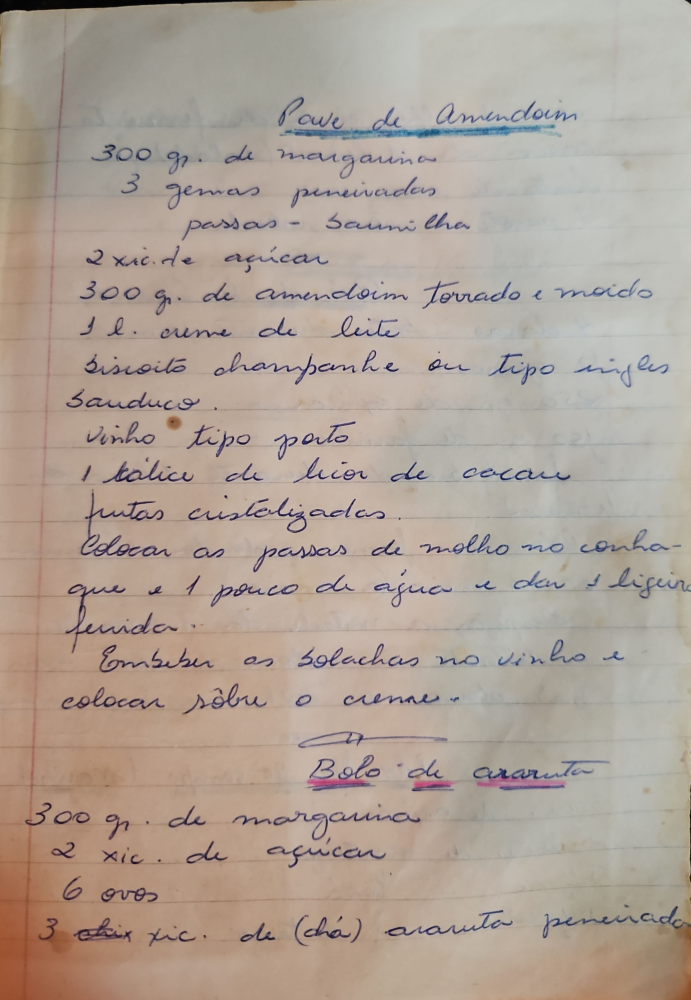 Pave de Amendoim
300 gr. de margarina
3 gemas peneiradas
passas - baunilha
2 xic. de açúcar
300 gr. de amendoim torrado e moido
1 l. creme de leite
biscoito champanhe ou tipo ingles
bauduco.
vinho tipo porto
1 cálice de licor de cacau
frutas cristalizadas.
Colocar as passas de molho no conha-
que e 1 pouco de água e dar 1 ligeira
fervida.
Embeber as bolachas no vinho e
colocar sôbre o creme.
Bolo de araruta
300 gr. de margarina
2 xic. de açúcar
6 ovos
3 xic. de (chá) araruta peneirada